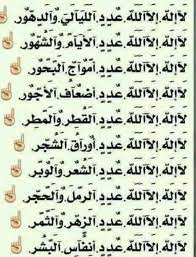 لآإلهَ إلاآللهَ عٌددِ آلليآليَ وٌآلدهِوٌر
لآإلهَ إلاآللهَ عٌددِ آلآيآمَ وٌآلشهِوٌر
لآإلهَ إلاآللهَ عٌددِ أموٌآجَ آلبحٌوٌر
لآإلهَ إلاآللهَ عٌددِ أضعآفَ آلآجوٌر
لآإلهَ إلاآللهَ عٌددِ آلقطر وٌآلمطر
لآإلهَ إلاآللهَ عٌددِ أوٌرآقَ آلشجر
لآإلهَ إلاآللهَ عٌددِ آلشعر وٌآلوٌبر
لآإلهَ إلاآللهَ عٌددِ آلرمل وٌآلحجر
لآإلهَ إلاآللهَ عٌددِ آلزهر وٌآلثمر
لآإلهَ إلاآللهَ عٌددِ أنفآسَ آلبشر